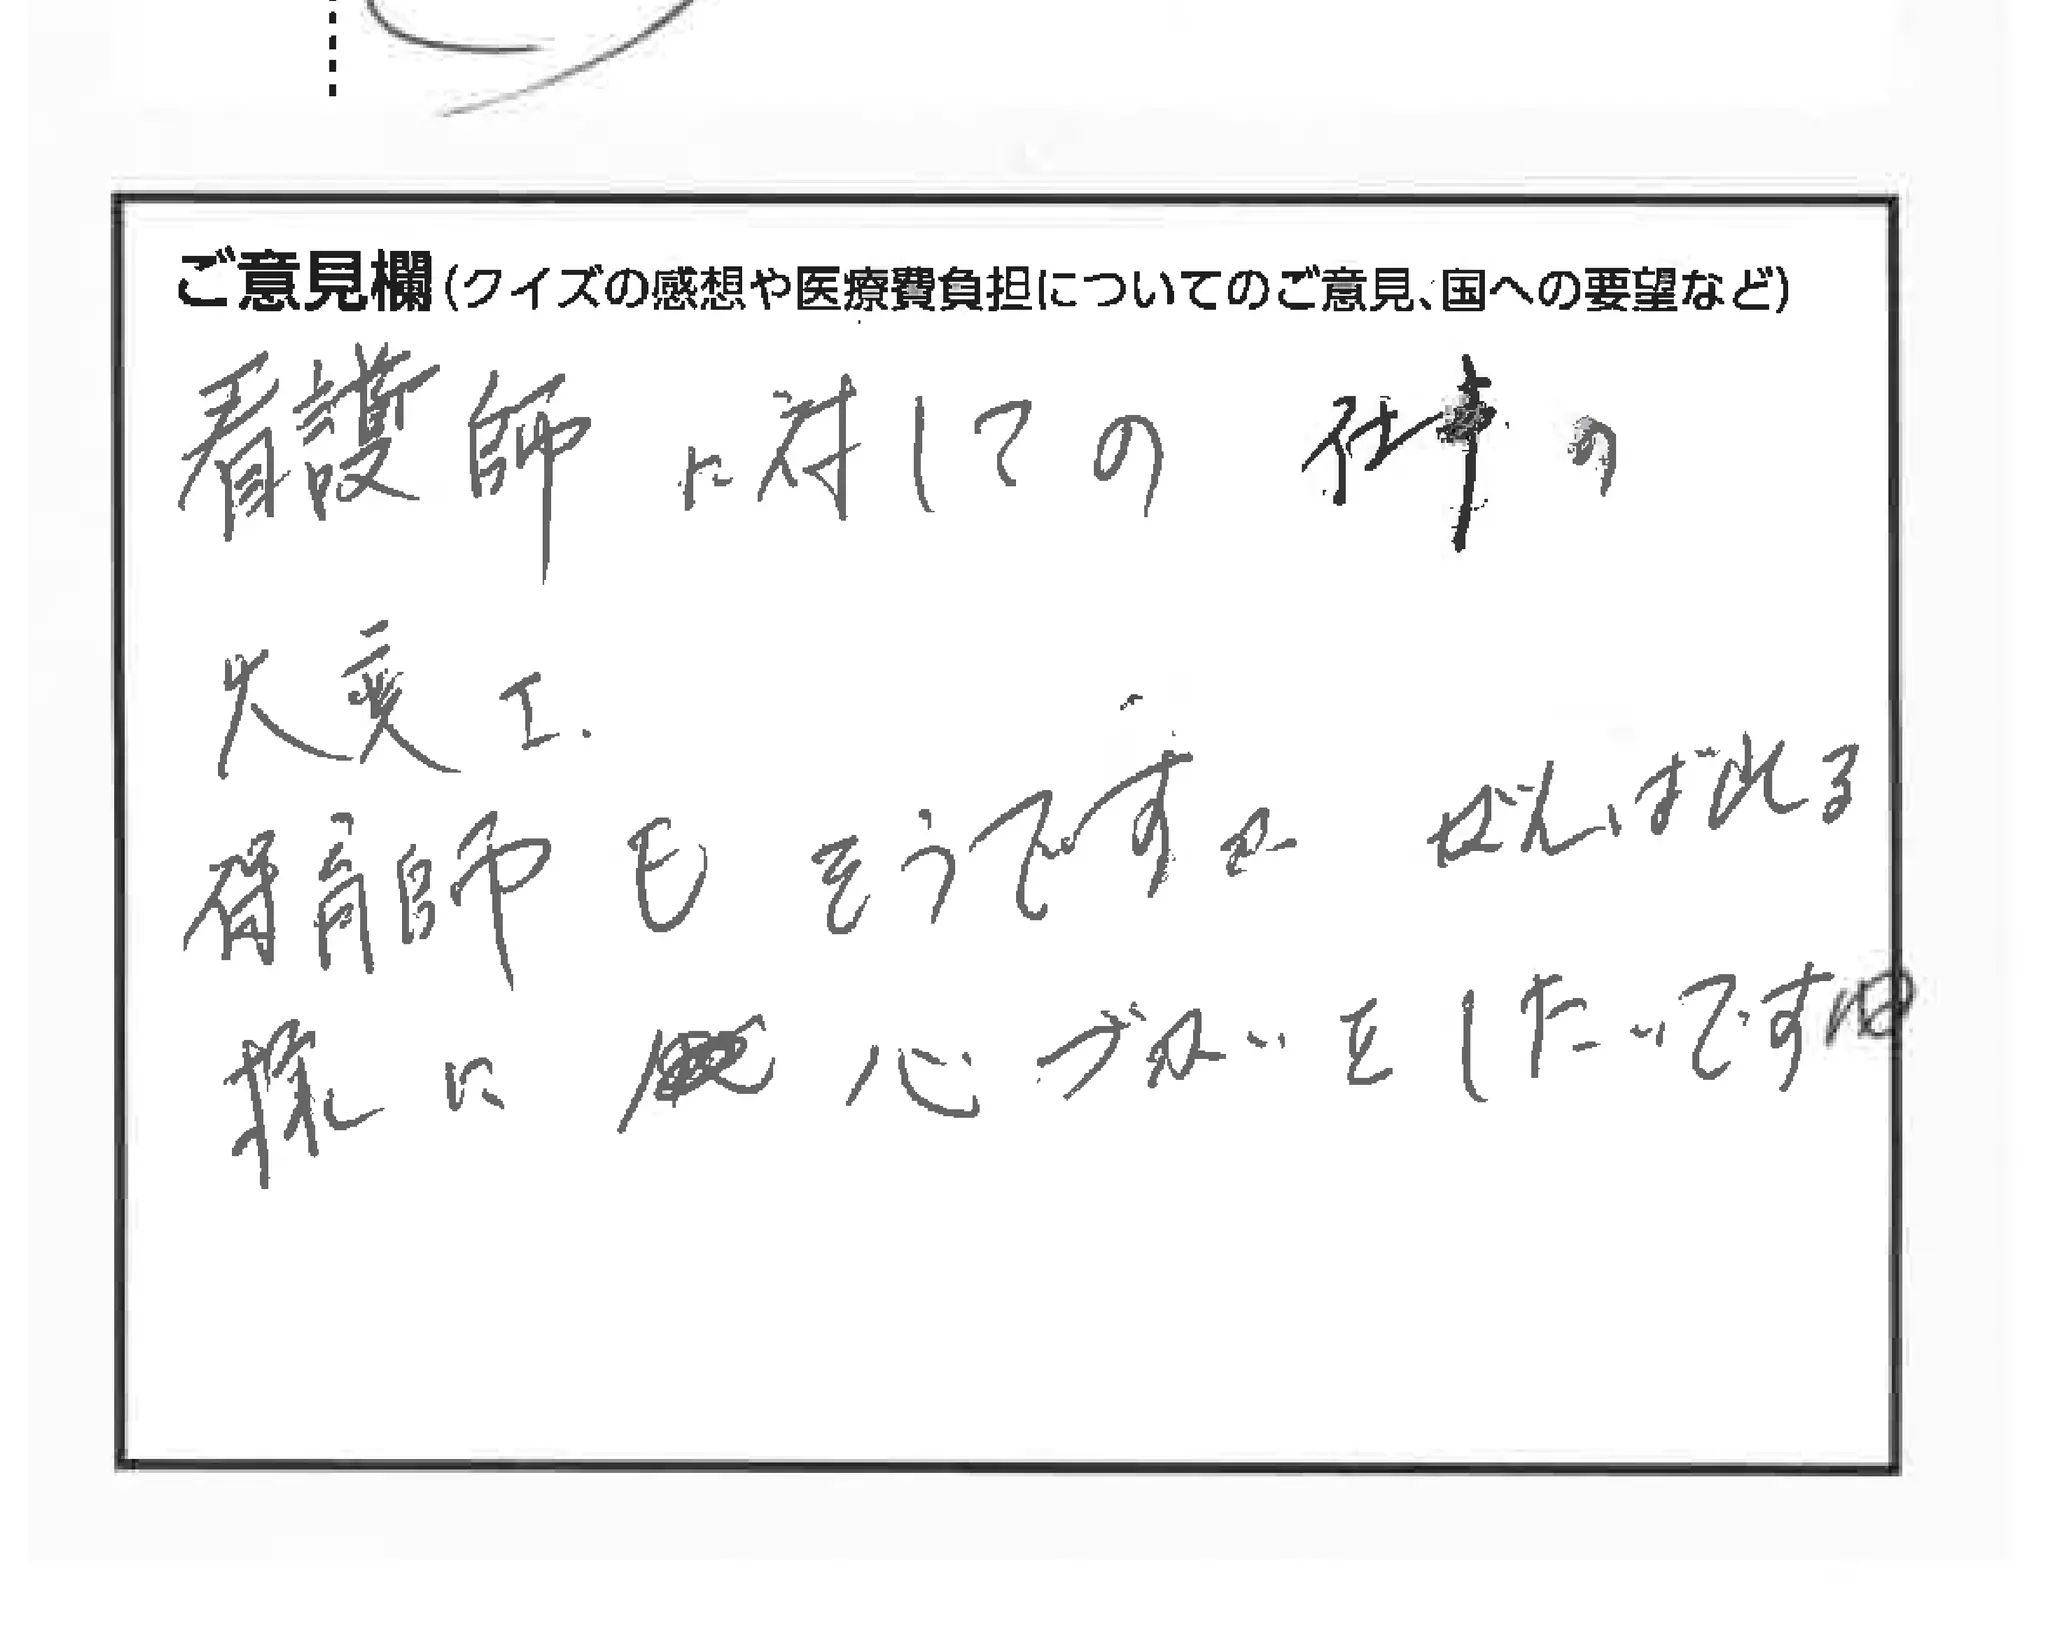 ご意見欄(クイズの感想や医療費負担についてのご意見、国への要望など)
看護師に対しての 仕事の
大変エ.
保育師も そうですが がんばれる
様に 心づかいをしたいです